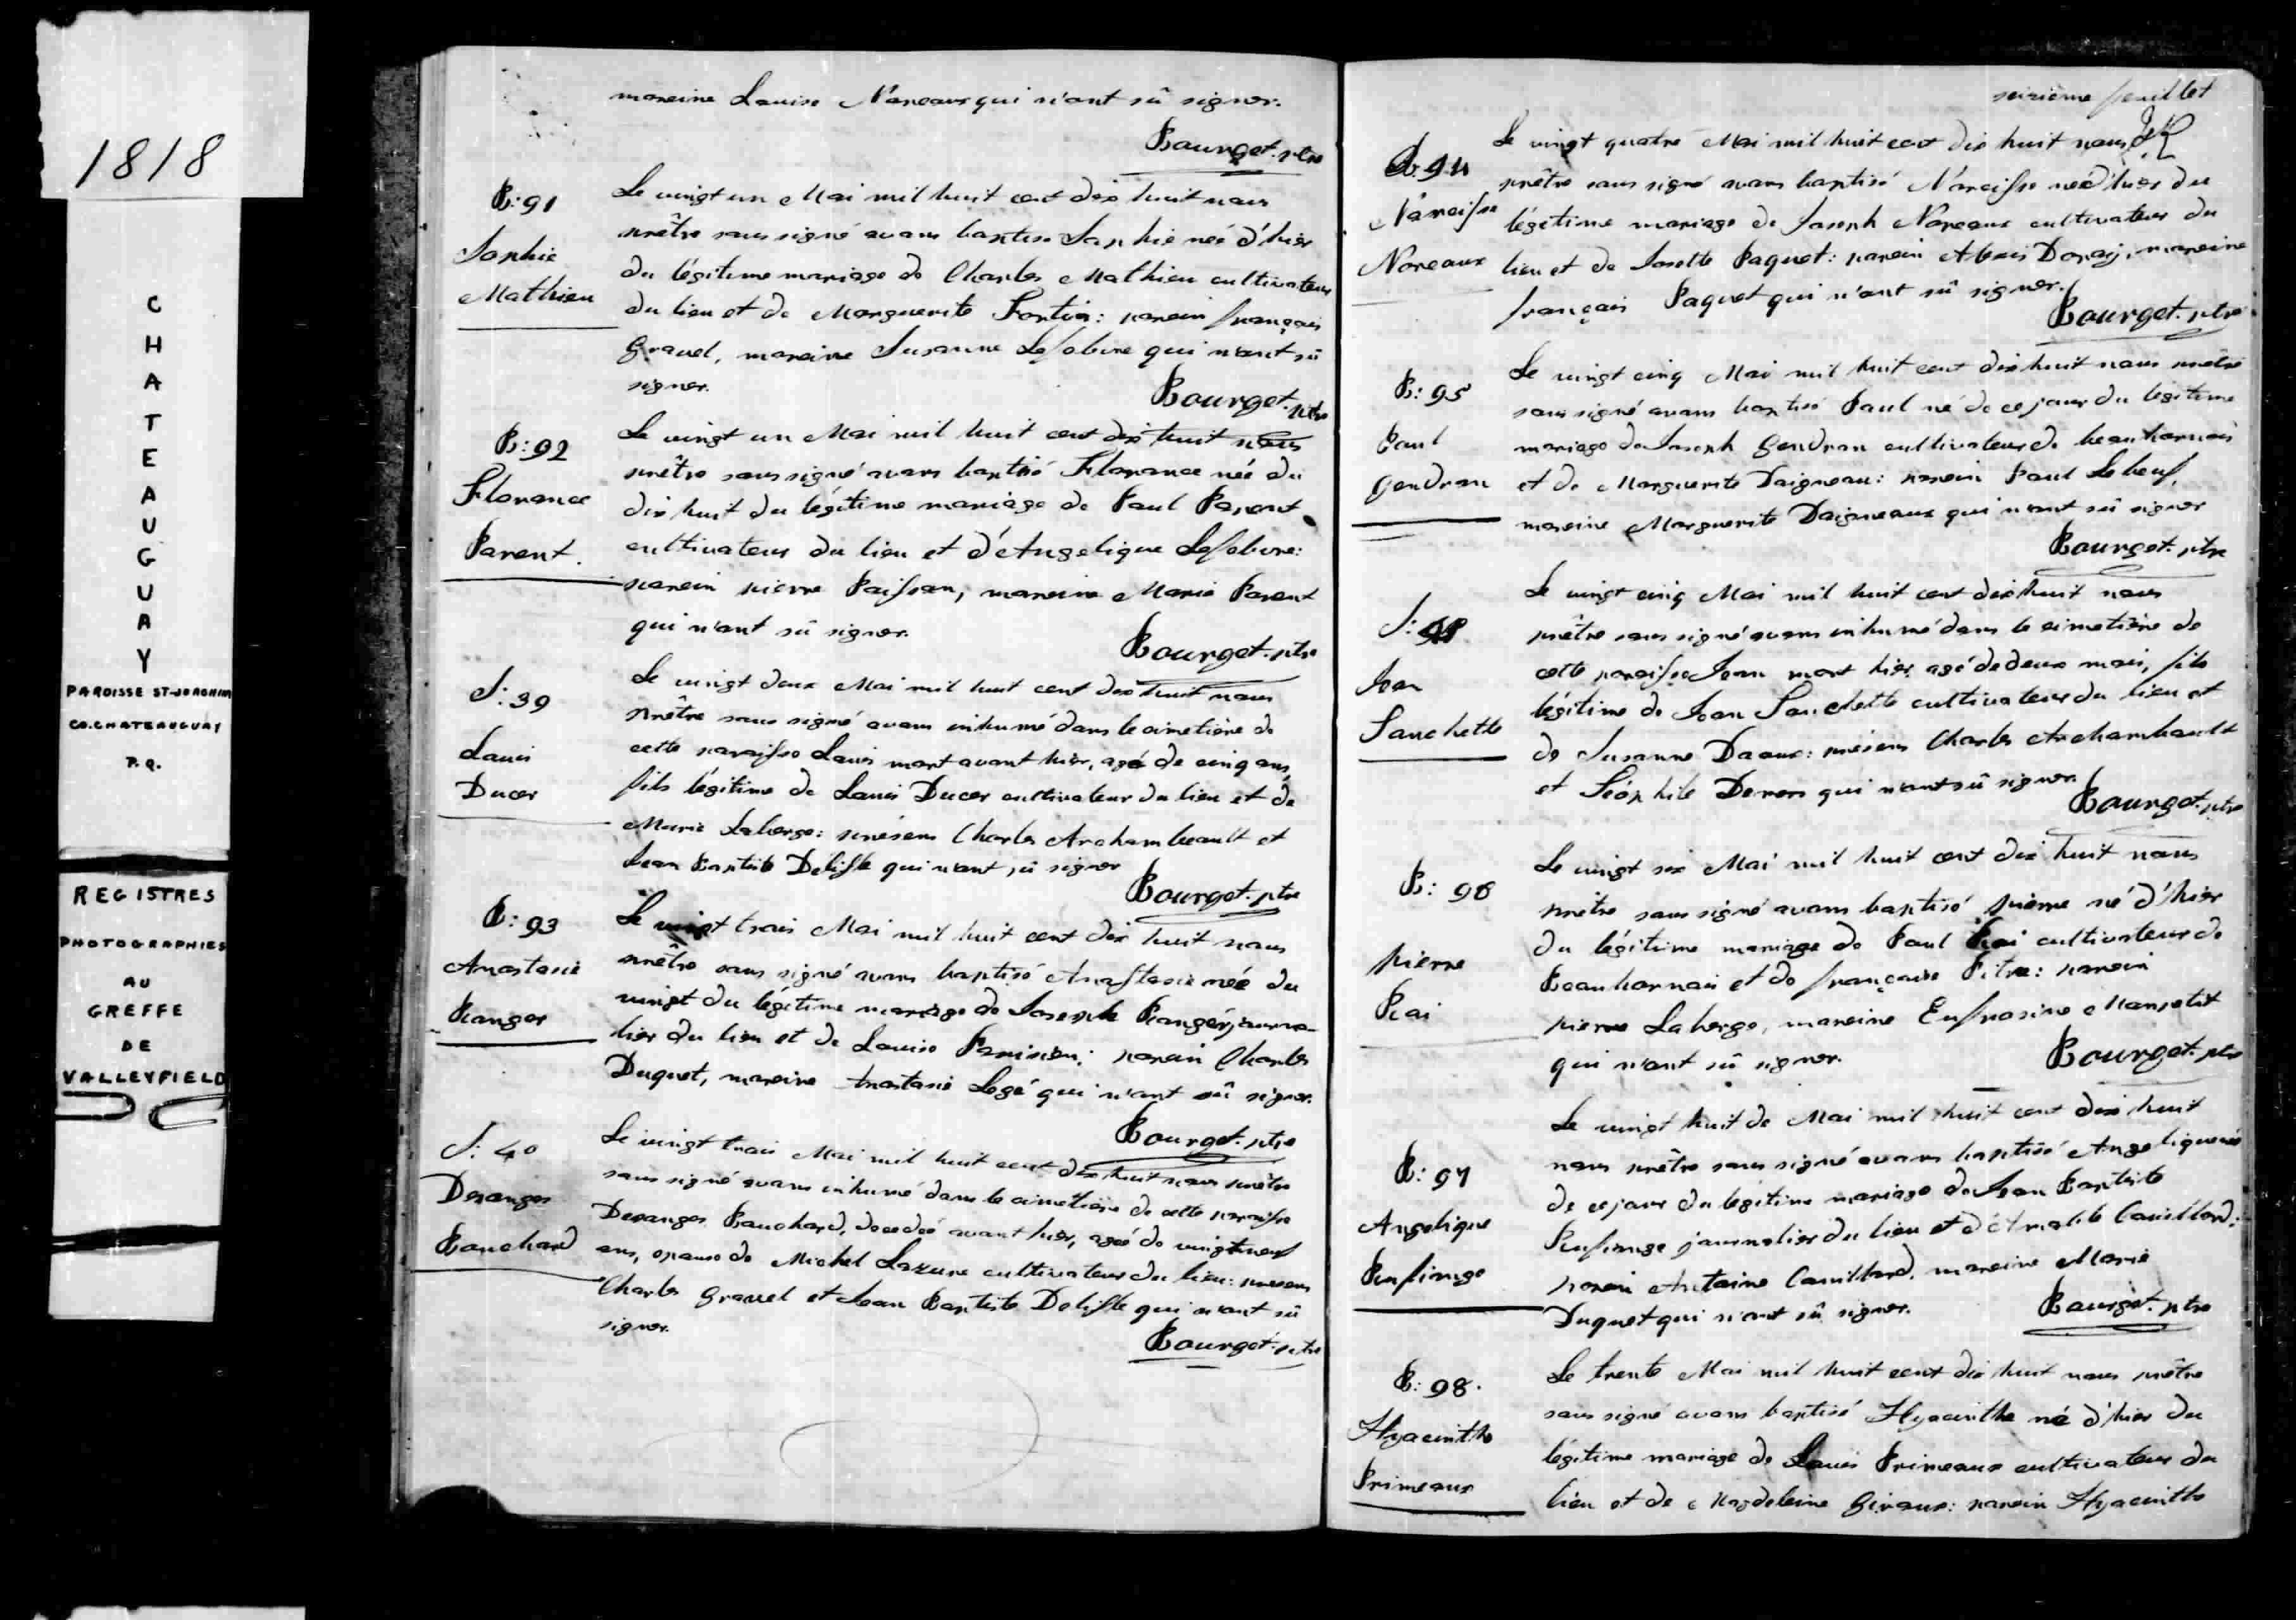 1818
CHATEAUGUAY
PAROISSE ST-JOACHIM
CO. CHATEAUGUAY
P.Q.
REGISTRES
PHOTOGRAPHIES
AU
GREFFE
DE
VALLEYFIELD
mareine Louise Nareaux qui n'ont sû signer.
Bourget. ptre
B: 91
Sophie
Mathieu
Le vingt un Mai mil huit cent dix huit nous
prêtre sous signé avons baptisé Sophie née d'hier
du légitime mariage de Charles Mathieu cultivateur
du lieu et de Marguerite Fortier: parein françois
Gravel, mareine Susanne Lefebvre qui n'ont sû
signer.
Bourget. ptre
B: 92
Florance
Parent.
Le vingt un Mai mil huit cent dix huit nous
prêtre sous signé avons baptisé Florance née du
dix huit du légitime mariage de Paul Parent
cultivateur du lieu et d'Angelique Lefebvre:
parein pierre Poissan, mareine Marie Parent
qui n'ont sû signer.
Bourget. ptre
S: 39
Louis
Ducer
Le vingt deux Mai mil huit cent dix huit nous
prêtre sous signé avons inhumé dans le cimetière de
cette paroisse Louis mort avant hier, agé de cinq ans,
fils légitime de Louis Ducer cultivateur du lieu et de
Marie Laberge: présens Charles Archambeault et
Jean Baptiste Delisle qui n'ont sû signer
Bourget. ptre
B: 93
Anastasie
Ranger
Le vingt trois Mai mil huit cent dix huit nous
prêtre sous signé avons baptisé Anastasie née du
vingt du légitime mariage de Joseph Ranger, journa-
lier du lieu et de Louise Parisien: parein Charles
Duquet, mareine Anastasie Legé qui n'ont sû signer.
Bourget. ptre
S: 40
Desanges
Bouchard
Le vingt trois Mai mil huit cent dix huit nous prêtre
sous signé avons inhumé dans le cimetière de cette paroisse
Desanges Bouchard, decedée avant hier, agée de vingt neuf
ans, epouse de Michel Lazure cultivateur du lieu: presens
Charles Gravel et Jean Baptiste Delisle qui n'ont sû
signer.
Bourget. ptre
seizième feuillet
B: 94
Narcisse
Noreaux
Le vingt quatre Mai mil huit cent dix huit nous
prêtre sous signé avons baptisé Narcisse né d'hier du
légitime mariage de Joseph Noreaux cultivateur du
lieu et de Josette Paquet: parein Alexis Doray, mareine
françois Paquet qui n'ont sû signer.
Bourget. ptre
B: 95
Paul
Gendron
Le vingt cinq Mai mil huit cent dix huit nous prêtre
sous signé avons baptisé Paul né de ce jour du légitime
mariage de Joseph Gendron cultivateur de beauharnois
et de Marguerite Daigneau: parein Paul Lebeuf,
mareine Marguerite Daigneaux qui n'ont sû signer
Bourget. ptre
S:
Jean
Sauchette
Le vingt cinq Mai mil huit cent dix huit nous
prêtre sous signé avons inhumé dans le cimetière de
cette paroisse Jean mort hier agé de deux mois, fils
légitime de Jean Sauchette cultivateur du lieu et
de Susanne Daoux: présens Charles Archambault
et Téophile Demers qui n'ont sû signer.
Bourget. ptre
B: 96
pierre
Roi
Le vingt six Mai mil huit cent dix huit nous
prêtre sous signé avons baptisé pierre né d'hier
du légitime mariage de Paul Roi cultivateur de
Beauharnois et de françoise Pitre: parein
pierre Laberge, mareine Eufrosine Monpetit
qui n'ont sû signer.
Bourget. ptre
B: 97
Angelique
Le vingt huit de Mai mil huit cent dix huit
nous prêtre sous signé avons baptisé Angelique née
de ce jour du légitime mariage de Jean Baptiste
journalier du lieu et d'Amable Couillard:
parein Antoine Couillard, mareine Marie
Duquet qui n'ont sû signer.
Bourget. ptre
B: 98.
Hyacinthe
Primeaux
Le trente Mai mil huit cent dix huit nous prêtre
sous signé avons baptisé Hyacinthe né d'hier du
légitime mariage de Louis Primeaux cultivateur du
lieu et de Magdeleine Giroux: parein Hyacinthe